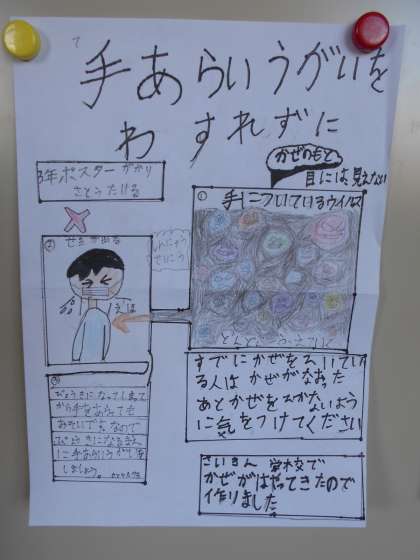 手あらいうがいを
わすれずに
3年ポスターがかり
さとうたける
かぜのもと
目には見えない
①
手についているウイルス
②
せきが出る
しんにゅう
せいこう
えほ
すでにかぜをひいてい
る人はかぜがなおった
あとかぜをひかないよう
に気をつけてください
③
びょうきになってしまって
から手をあらっても
おそいです。なので
びょうきになるまえ
に手あらいうがいを
しましょう。
さいきん 学校で
かぜがはやってきたので
作りました